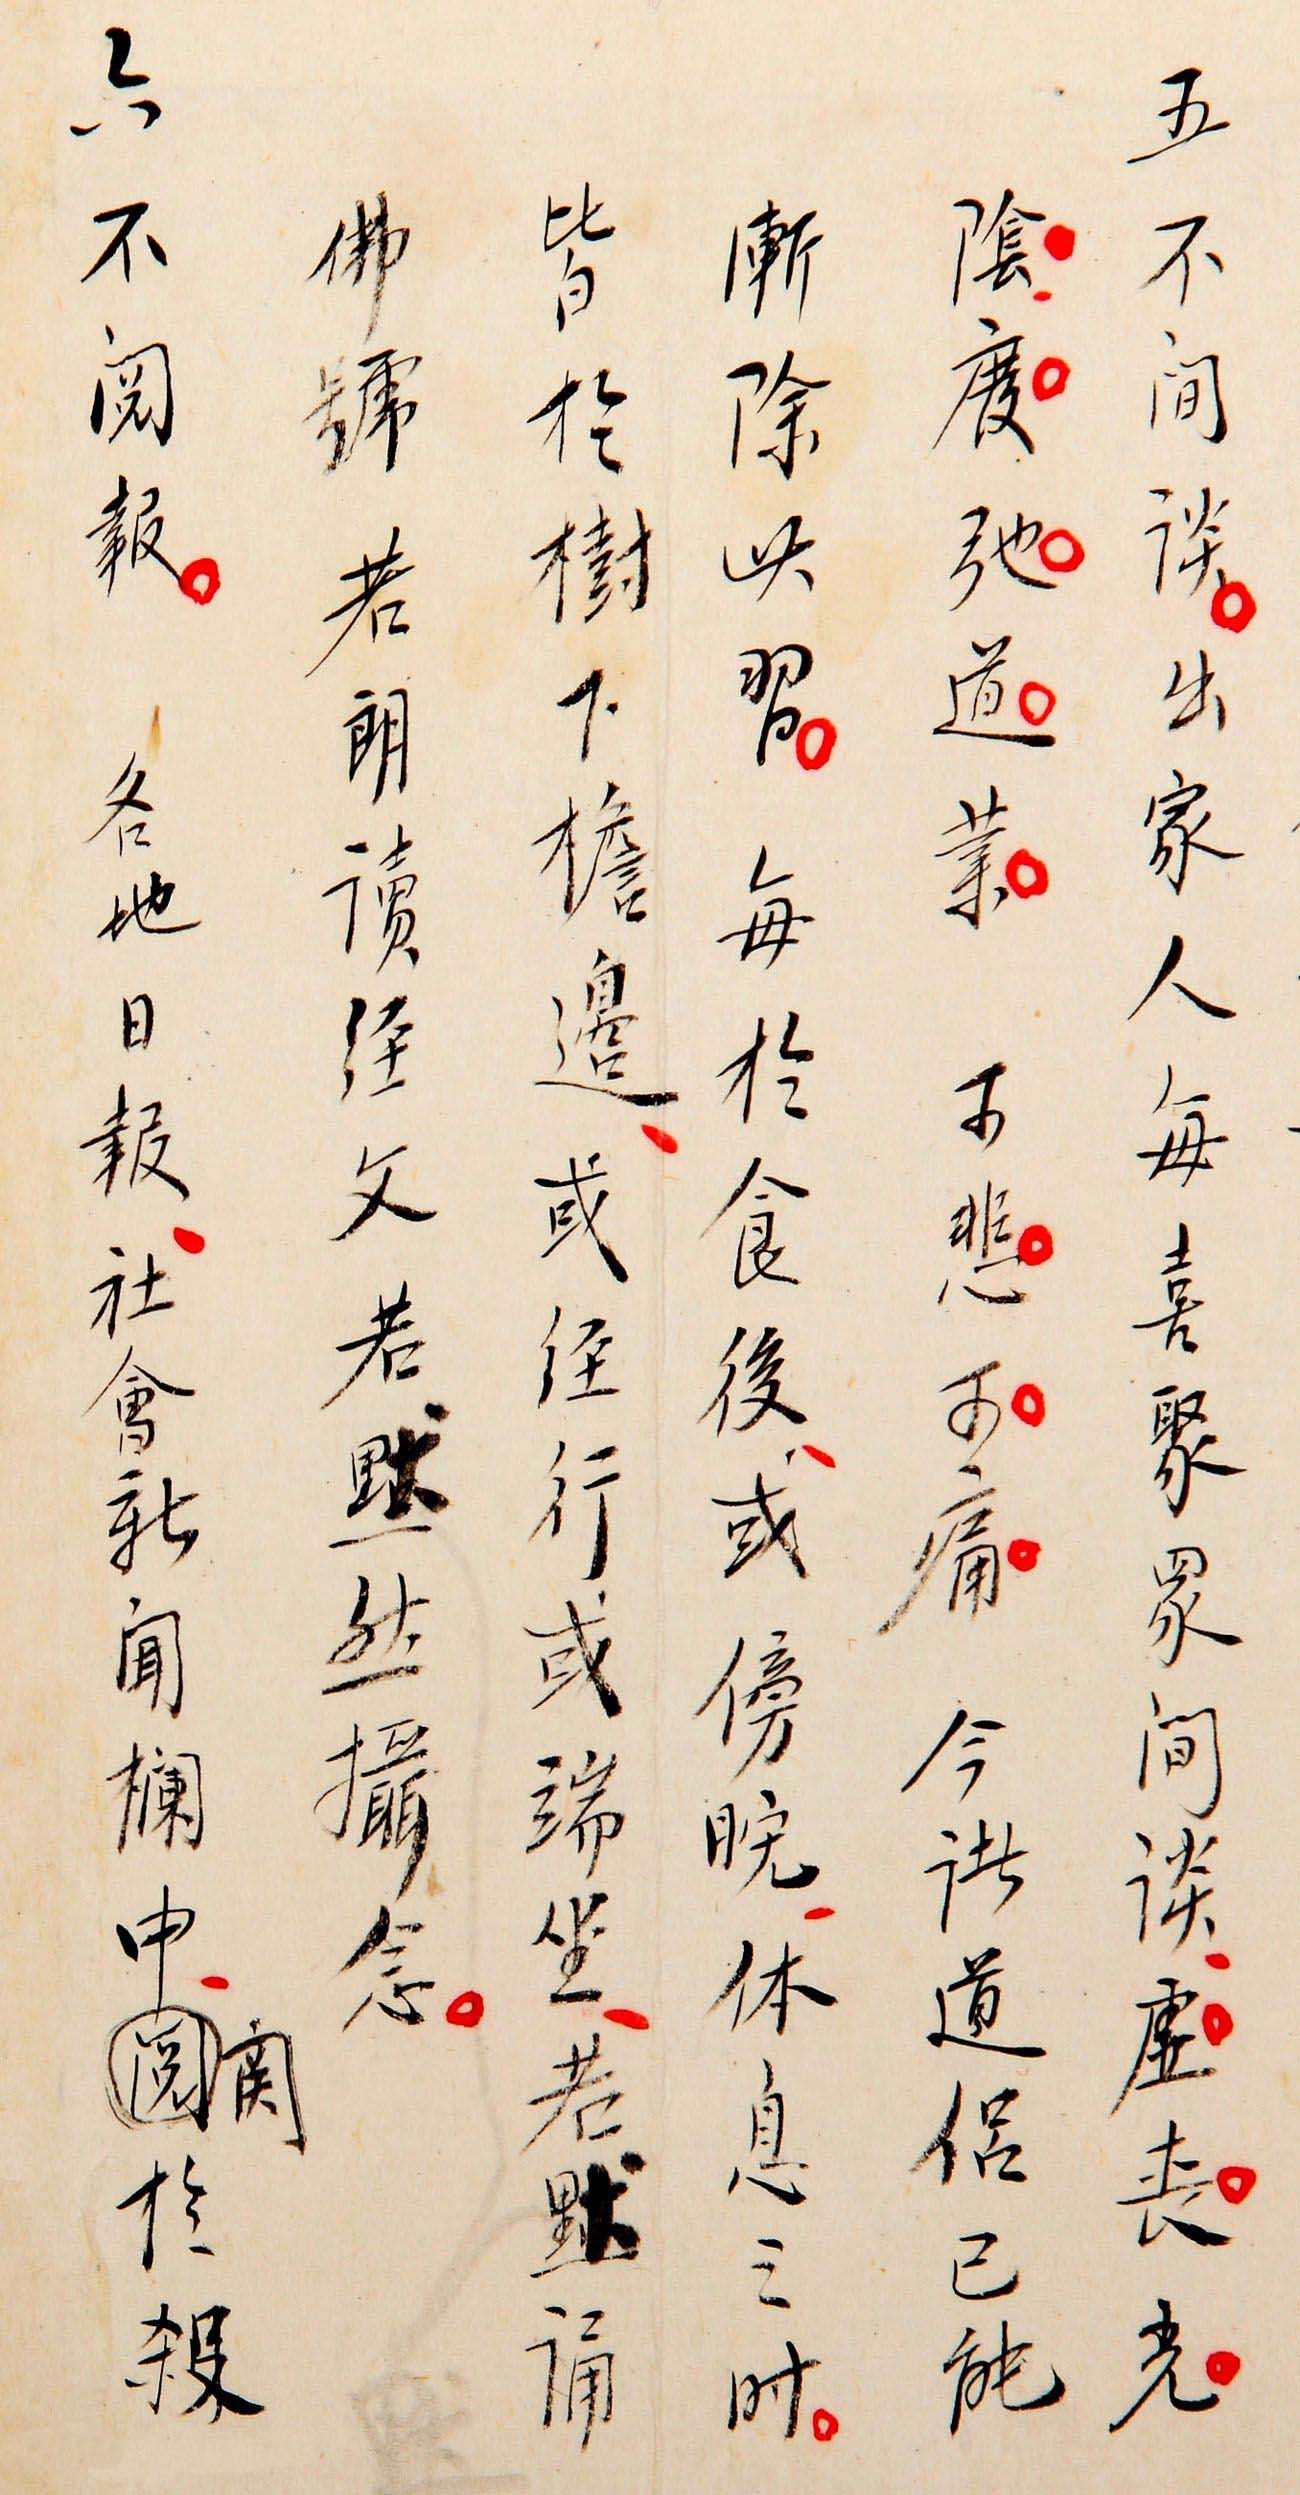 五不间谈。出家人每喜聚眾间谈、虚丧光
陰、废弛道業　可悲可痛　今諸道侣已能
漸除此習。每於食後、或傍晚、休息之时。
皆於樹下檐邊、或经行或端坐、若默誦
佛號　若朗讀经文若默然攝念。
六不阅報。　各地日報、社會新闻欄中、阅関於殺